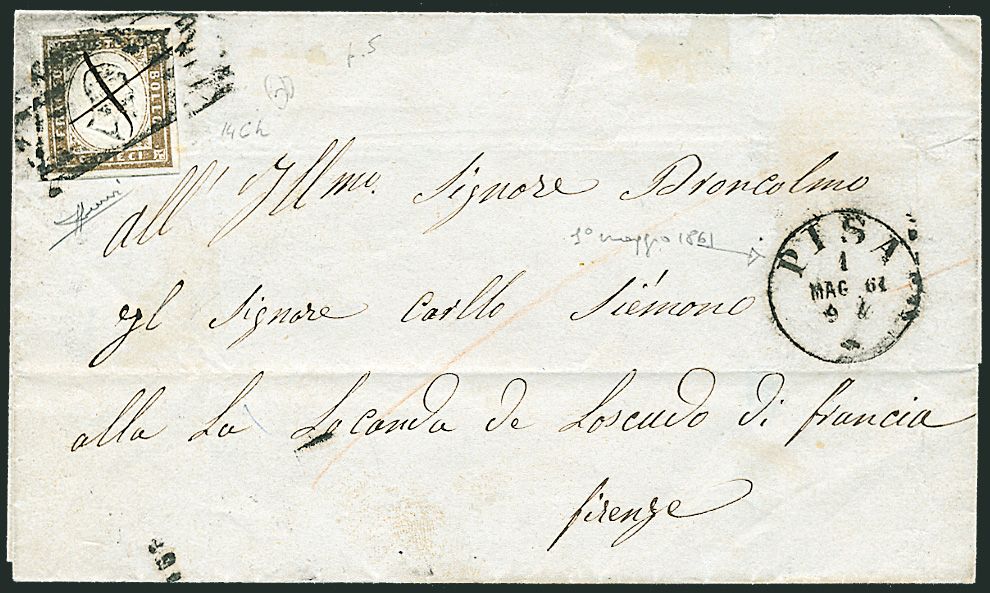 BOLLO
DIECI
p. 5
14Ch
all' Illmo. Signore Broncolmo
1° maggio 1861
PISA
1
MAG 61
9
egl Signore Carllo Siémone
alla La Locanda de Loscudo di francia
firenze